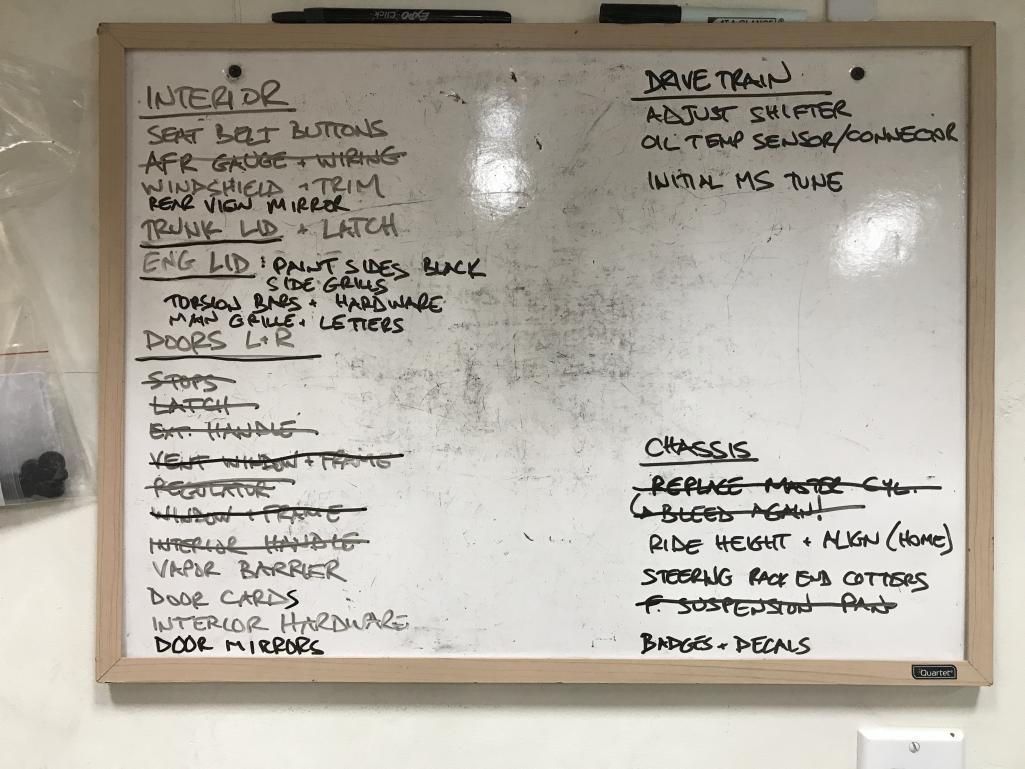 EXPO Click
AT-A-GLANCE
INTERIOR
SEAT BELT BUTTONS
AFR GAUGE + WIRING
WINDSHIELD + TRIM
REAR VIEW MIRROR
TRUNK LID + LATCH
ENG LID : PAINT SIDES BLACK
SIDE GRILLS
TORSION BARS + HARDWARE
MAIN GRILLE + LETTERS
DOORS L+R
STOPS
LATCH
EXT. HANDLE
VENT WINDOW + FRAME
REGULATOR
WINDOW + FRAME
INTERIOR HANDLE
VAPOR BARRIER
DOOR CARDS
INTERIOR HARDWARE
DOOR MIRRORS
DRIVE TRAIN
ADJUST SHIFTER
OIL TEMP SENSOR/CONNECTOR
INITIAL MS TUNE
CHASSIS
REPLACE MASTER CYL.
BLEED AGAIN!
RIDE HEIGHT + ALIGN (HOME)
STEERING RACK END COTTERS
F. SUSPENSION PAN
BADGES + DECALS
Quartet